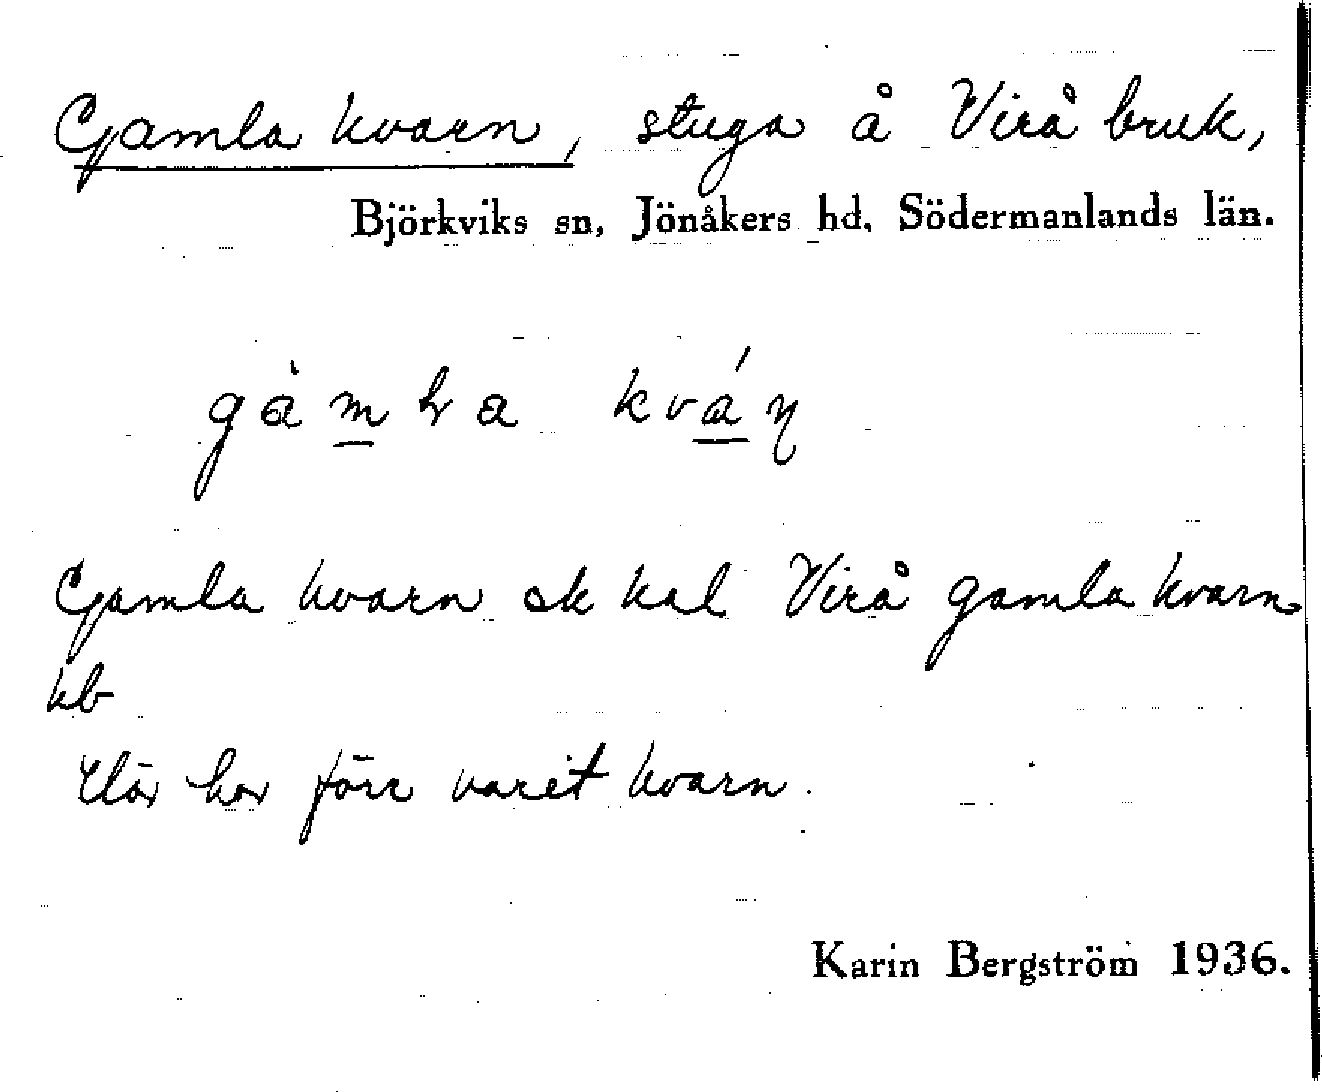 Gamla kvarn, stuga å Virå bruk,
Björkviks sn, Jönåkers hd, Södermanlands län.
gàmla kván
Gamla kvarn ek kal Virå gamla kvarn
kb
Där har förr varit kvarn.
Karin Bergström 1936.